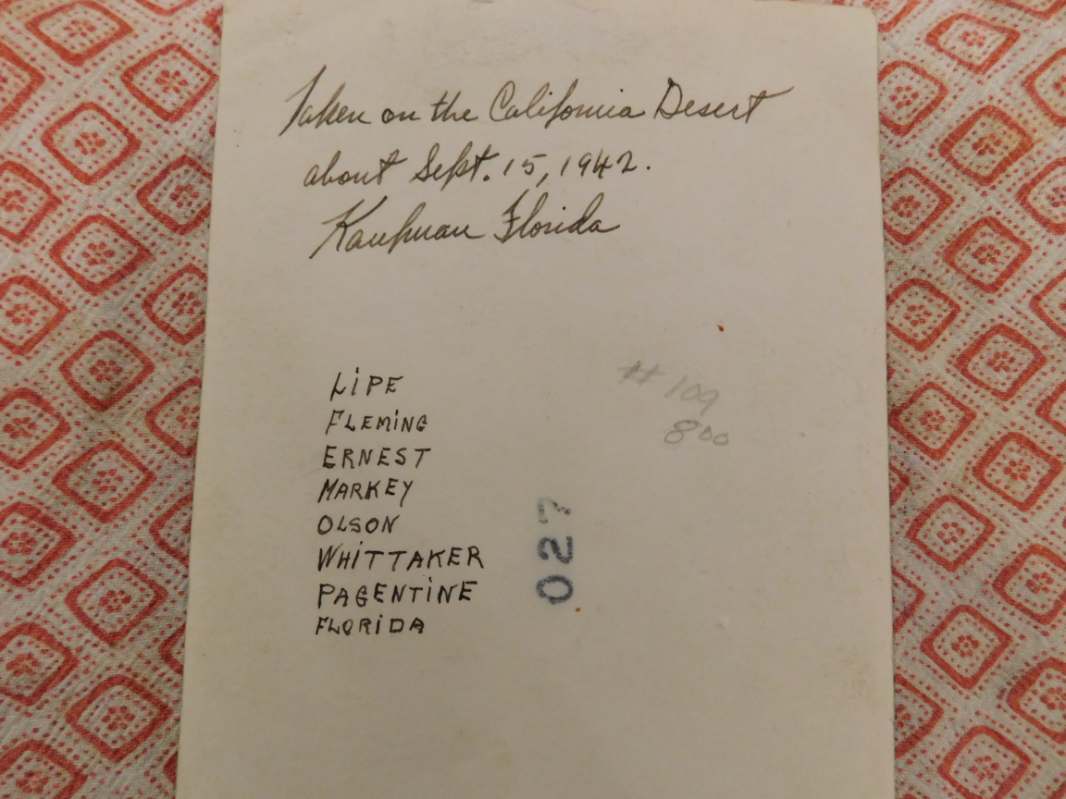 Taken on the California Desert
about Sept. 15, 1942.
Kaufman Florida
LiPE
FLEMiNG
ERNEST
MARKEY
OLSON
WHiTTAKER
PAGENTiNE
FLORiDA
# 109
8 00
027